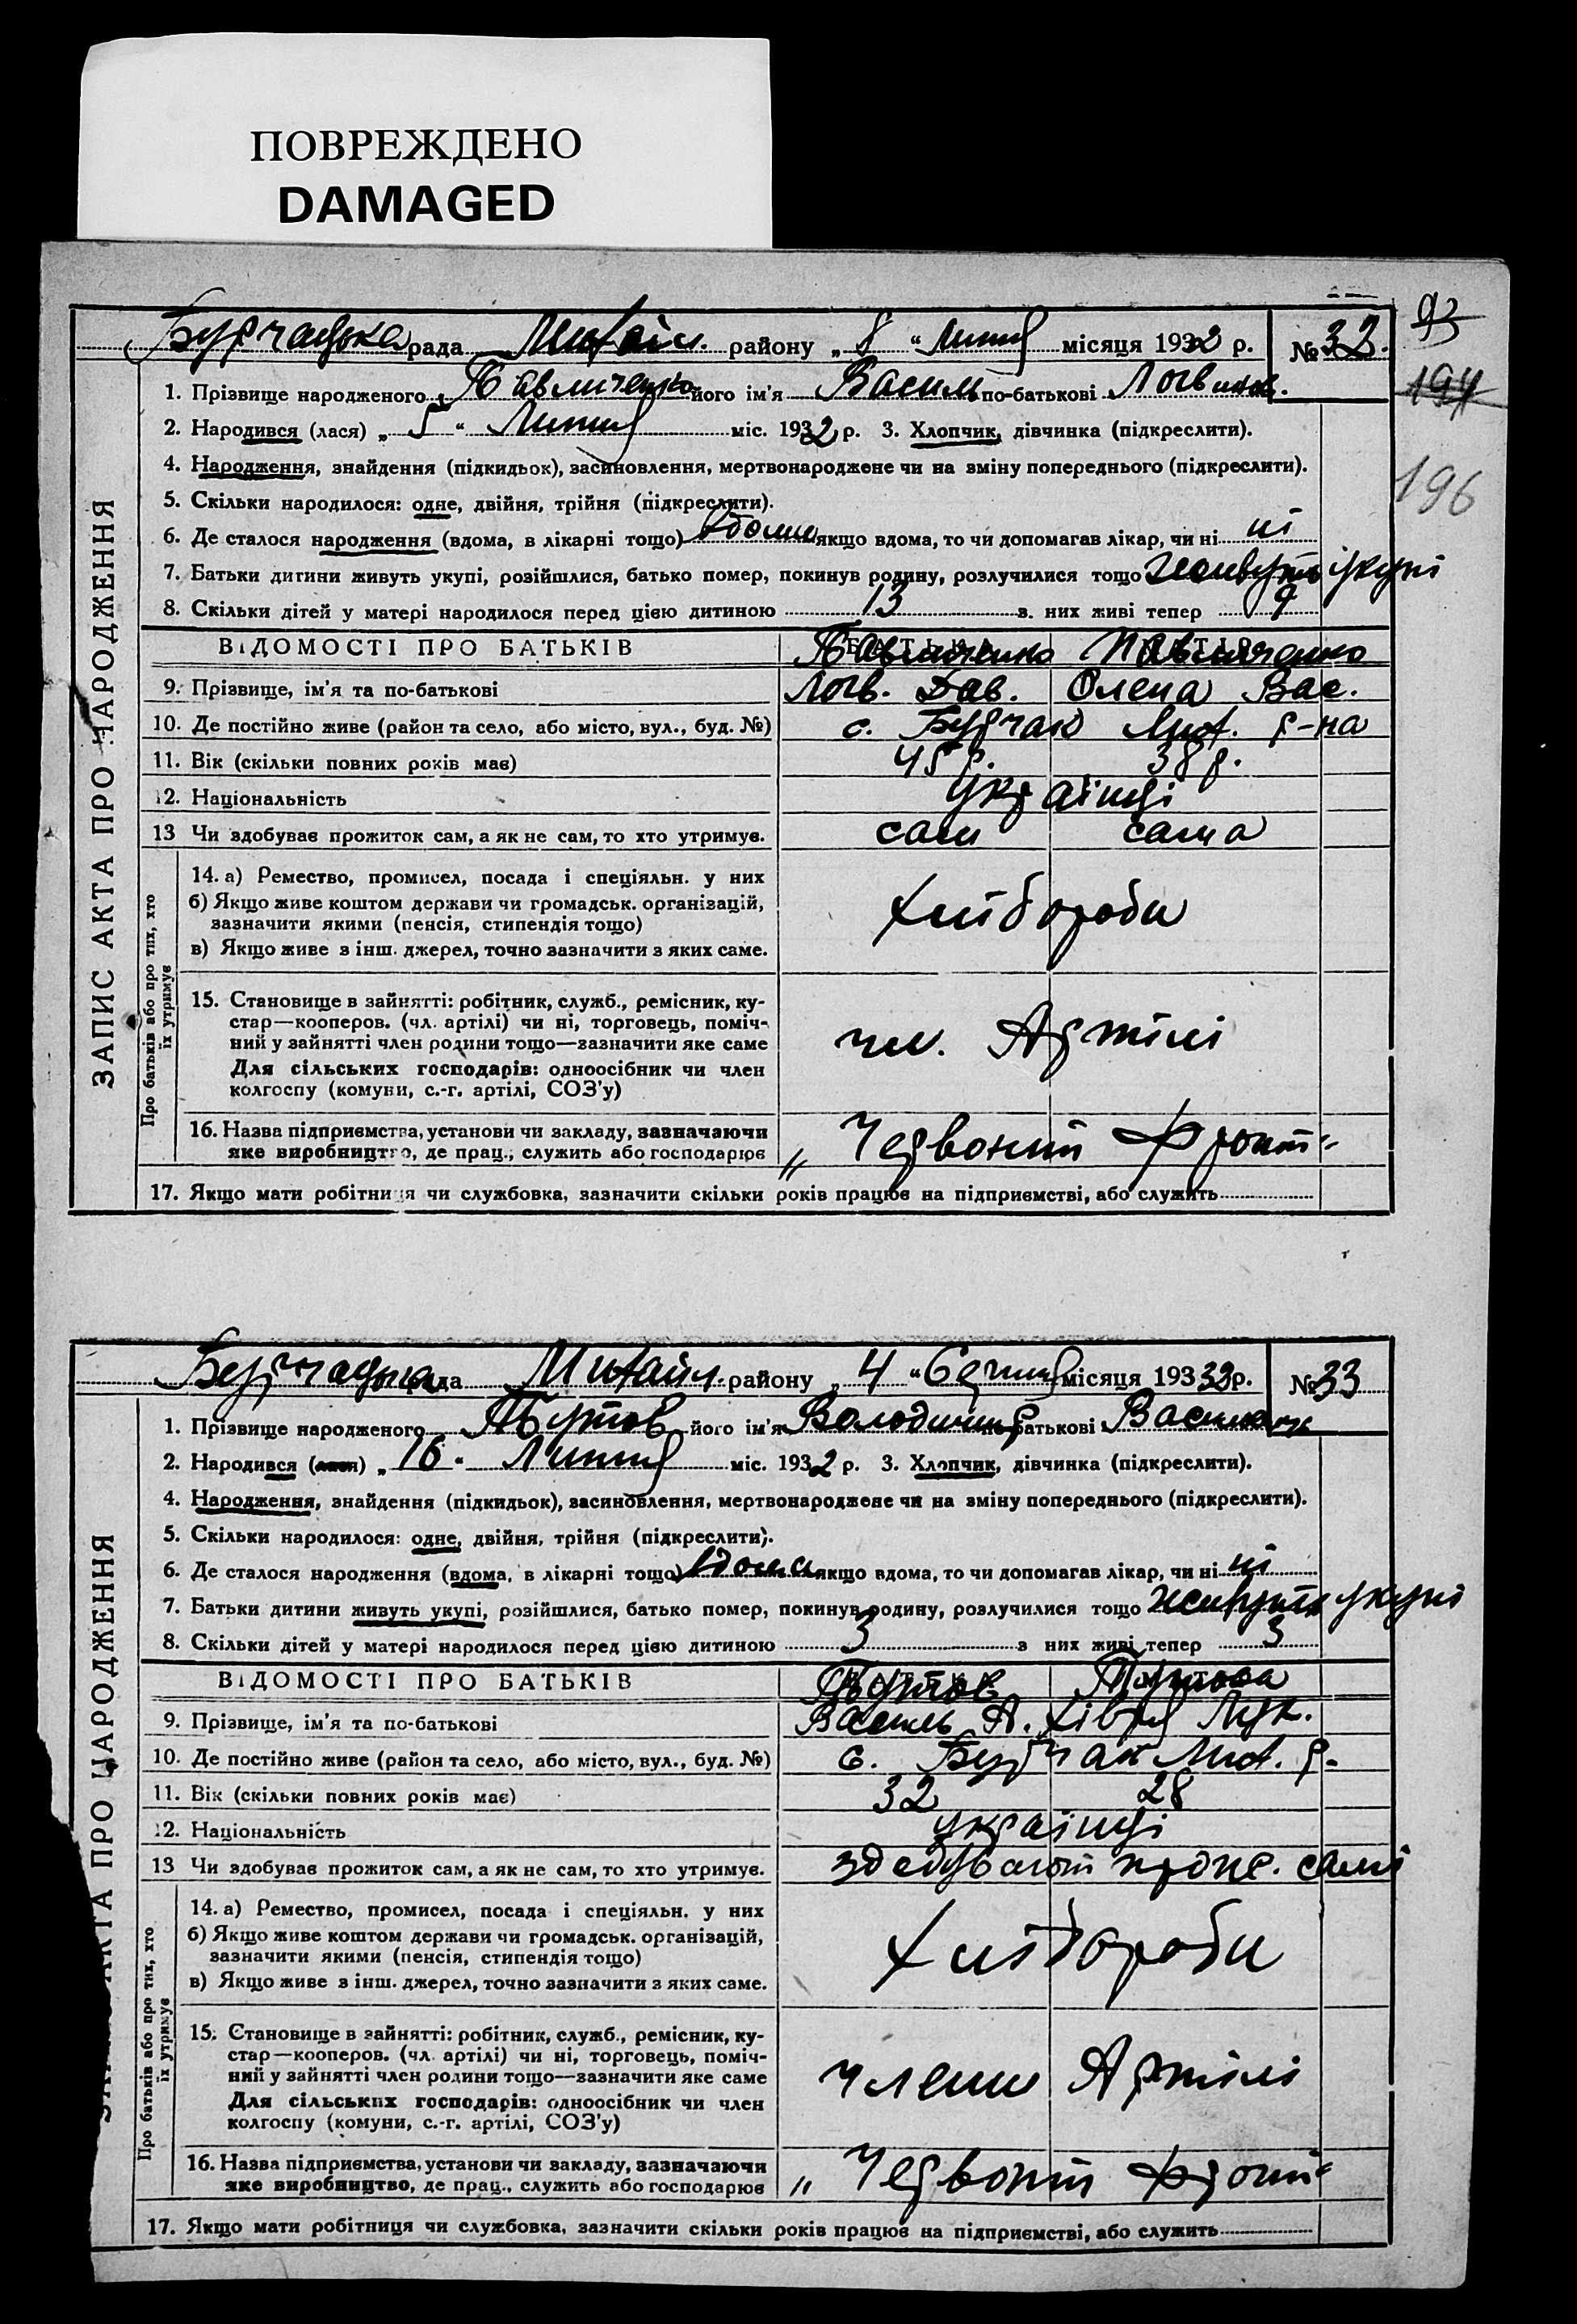 ПОВРЕЖДЕНО
DAMAGED
93
194
196
Бурчацька рада Михайл. району „ 8 “ Липня місяця 1932 р. № 32.
1. Прізвище народженого Павличенко його ім'я Василь по-батькові Логвинов.
2. Народився (лася) „ 5 “ Липня міс. 1932 р. 3. Хлопчик, дівчинка (підкреслити).
4. Народження, знайдення (підкидьок), засиновлення, мертвонароджене чи на зміну попереднього (підкреслити).
5. Скільки народилося: одне, двійня, трійня (підкреслити).
6. Де сталося народження (вдома, в лікарні тощо) вдома якщо вдома, то чи допомагав лікар, чи ні ні
7. Батьки дитини живуть укупі, розійшлися, батько помер, покинув родину, розлучилися тощо живуть укупі
8. Скільки дітей у матері народилося перед цією дитиною 13 з них живі тепер 9
ЗАПИС АКТА ПРО НАРОДЖЕННЯ
ВІДОМОСТІ ПРО БАТЬКІВ Павличенко Павличенко
9. Прізвище, ім'я та по-батькові Логв. Дав. Олена Вас.
10. Де постійно живе (район та село, або місто, вул., буд. №) с. Бурчак Мих. р-на
11. Вік (скільки повних років має) 45 р. 38 р.
12. Національність українці
13 Чи здобував прожиток сам, а як не сам, то хто утримує. сам сама
Про батьків або про тих, хто їх утримує
14. а) Ремество, промисел, посада і спеціяльн. у них
б) Якщо живе коштом держави чи громадськ. організацій,
зазначити якими (пенсія, стипендія тощо)
в) Якщо живе з інш. джерел, точно зазначити з яких саме.
хлібороби
15. Становище в зайнятті: робітник, служб., ремісник, ку-
стар—кооперов. (чл. артілі) чи ні, торговець, поміч-
ний у зайнятті член родини тощо—зазначити яке саме
Для сільських господарів: одноосібник чи член
колгоспу (комуни, с.-г. артілі, СОЗ'у)
чл. Артілі
16. Назва підприємства, установи чи закладу, зазначаючи
яке виробництво, де прац., служить або господарює
„ Червоний Фронт“
17. Якщо мати робітниця чи службовка, зазначити скільки років працює на підприємстві, або служить
Бурчацька рада Михайл. району „ 4 “ Серпня місяця 19332 р. № 33
1. Прізвище народженого його ім'я Володимир по-батькові Васильович
2. Народився (лася) „ 16 “ Липня міс. 1932 р. 3. Хлопчик, дівчинка (підкреслити).
4. Народження, знайдення (підкидьок), засиновлення, мертвонароджене чи на зміну попереднього (підкреслити).
5. Скільки народилося: одне, двійня, трійня (підкреслити).
6. Де сталося народження (вдома, в лікарні тощо) вдома якщо вдома, то чи допомагав лікар, чи ні ні
7. Батьки дитини живуть укупі, розійшлися, батько помер, покинув родину, розлучилися тощо живуть укупі
8. Скільки дітей у матері народилося перед цією дитиною 3 з них живі тепер 3
АКТА ПРО НАРОДЖЕННЯ
ВІДОМОСТІ ПРО БАТЬКІВ
9. Прізвище, ім'я та по-батькові Василь А. Хівря Лук.
10. Де постійно живе (район та село, або місто, вул., буд. №) с. Бурчак Мих. р.
11. Вік (скільки повних років має) 32 28
12. Національність українці
13 Чи здобував прожиток сам, а як не сам, то хто утримує. здобувають прож. самі
Про батьків або про тих, хто їх утримує
14. а) Ремество, промисел, посада і спеціяльн. у них
б) Якщо живе коштом держави чи громадськ. організацій,
зазначити якими (пенсія, стипендія тощо)
в) Якщо живе з інш. джерел, точно зазначити з яких саме.
хлібороби
15. Становище в зайнятті: робітник, служб., ремісник, ку-
стар—кооперов. (чл. артілі) чи ні, торговець, поміч-
ний у зайнятті член родини тощо—зазначити яке саме
Для сільських господарів: одноосібник чи член
колгоспу (комуни, с.-г. артілі, СОЗ'у)
члени Артілі
16. Назва підприємства, установи чи закладу, зазначаючи
яке виробництво, де прац., служить або господарює
„ Червоний Фронт“
17. Якщо мати робітниця чи службовка, зазначити скільки років працює на підприємстві, або служить